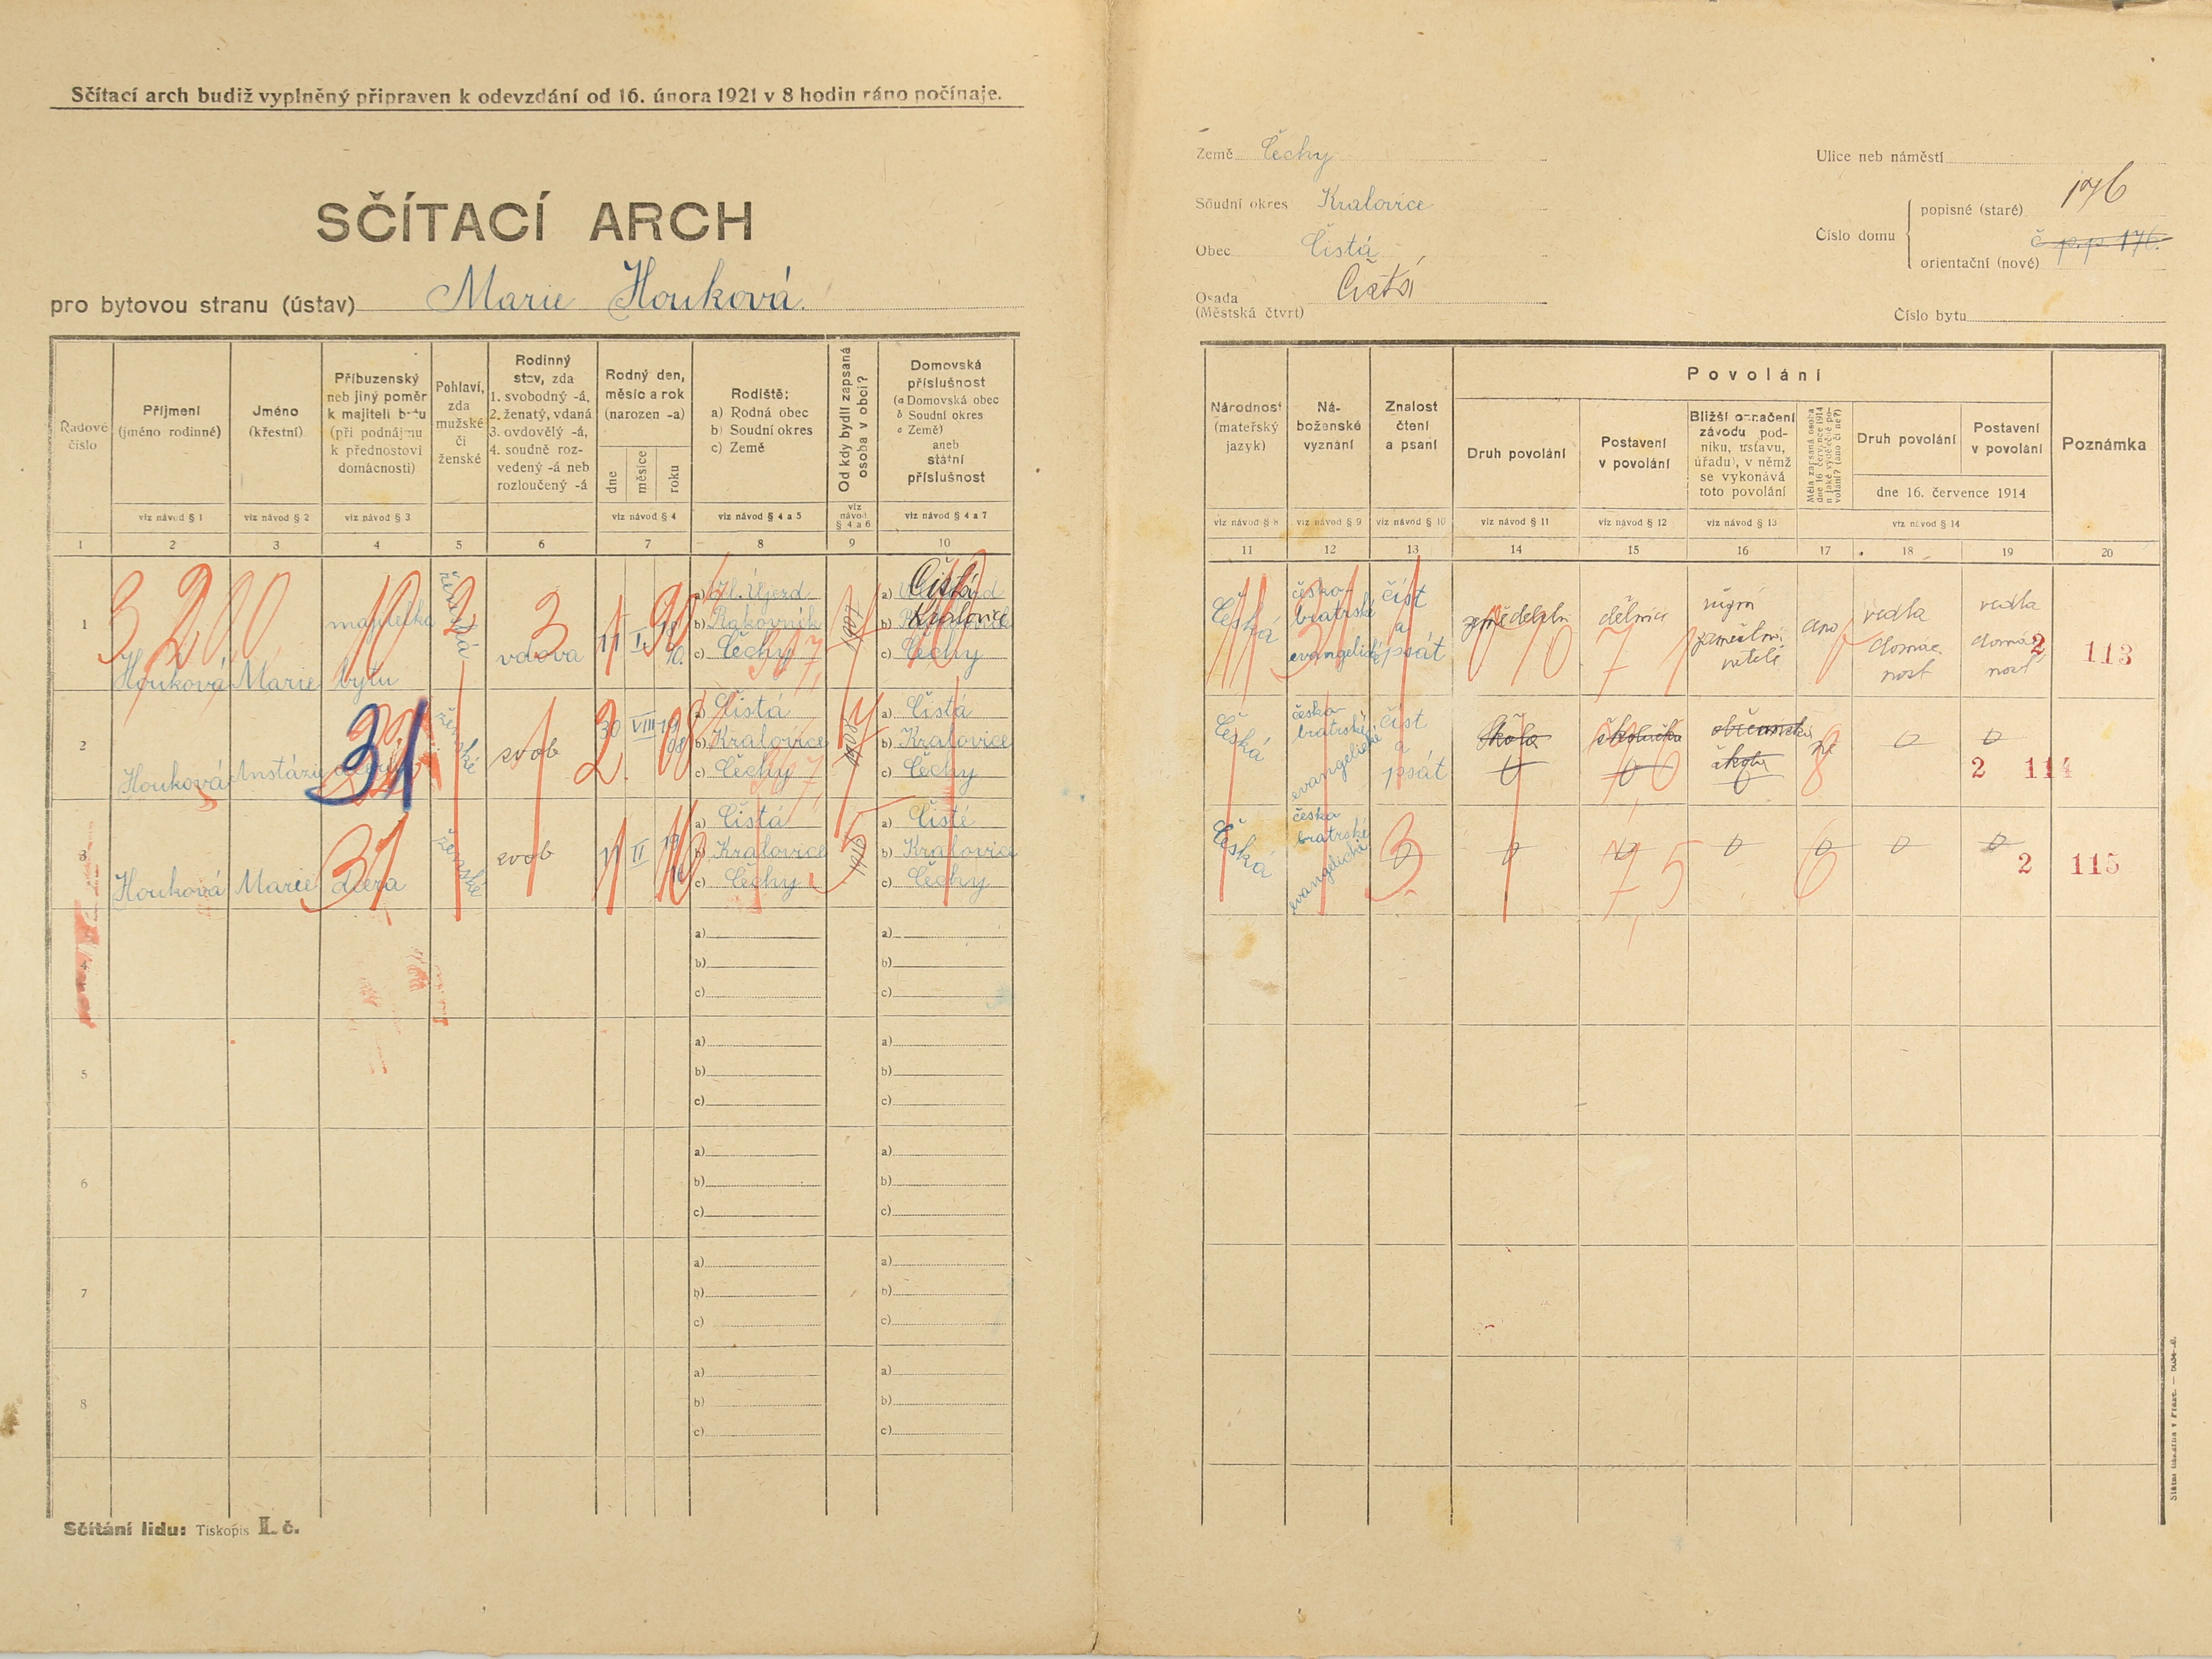 Sčítací arch budiž vyplněný připraven k odevzdání od 16. února 1921 v 8 hodin ráno počínaje.
SČÍTACÍ ARCH
pro bytovou stranu (ústav) Marie Houková.
Země Čechy
Soudní okres Kralovice
Obec Čistá
Osada Čistá
(Městská čtvrt)
Ulice neb náměstí
Číslo domu
popisné (staré) 176
č. p. p. 176.
orientační (nové)
Číslo bytu
Řadové číslo
Příjmení (jméno rodinné)
Jméno (křestní)
Příbuzenský neb jiný poměr k majiteli bytu (při podnájmu k přednostovi domácnosti)
Pohlaví, zda mužské či ženské
Rodinný stav, zda 1. svobodný -á, 2. ženatý, vdaná 3. ovdovělý -á, 4. soudně rozvedený -á neb rozloučený -á
Rodný den, měsíc a rok (narozen -a)
dne
měsíce
roku
Rodiště:
a) Rodná obec
b) Soudní okres
c) Země
Od kdy bydlí zapsaná osoba v obci?
Domovská příslušnost
(a Domovská obec
b Soudní okres
c Země)
aneb státní příslušnost
viz návod § 1
viz návod § 2
viz návod § 3
viz návod § 4
viz návod § 4 a 5
viz návod § 4 a 6
viz návod § 4 a 7
1 2 3 4 5 6 7 8 9 10
Národnost (mateřský jazyk)
Náboženské vyznání
Znalost čtení a psaní
Povolání
Druh povolání
Postavení v povolání
Bližší označení závodu podniku, ústavu, úřadu), v němž se vykonává toto povolání
Měla zapsaná osoba dne 16. července 1914 nějaké výdělečné povolání? (ano či ne?)
Druh povolání
Postavení v povolání
dne 16. července 1914
Poznámka
viz návod § 8
viz návod § 9
viz návod § 10
viz návod § 11
viz návod § 12
viz návod § 13
viz návod § 14
11 12 13 14 15 16 17 18 19 20
1
Houková Marie
majitelka bytu
ženská
vdova
11 I.
a) Újezd
b) Rakovník
c) Čechy
1907
a) Čistá
b) Kralovice
c) Čechy
Česká
česko-bratrské evangelické
číst a psát
dělnice
ano
vedla domácnost
vedla domácnost
2 113
2
Houková Anstázie
31
ženské
svob
30 VIII 1908
a) Čistá
b) Kralovice
c) Čechy
1908
a) Čistá
b) Kralovice
c) Čechy
Česká
česko-bratrské evangelické
číst a psát
škola
0
0
0
ne
0
0
2 114
3
Houková Marie dcera
ženské
svob
11 II 1916
a) Čistá
b) Kralovice
c) Čechy
a) Čisté
b) Kralovice
c) Čechy
Česká
česko bratrské evangelické
0
0
0
0
0
2 115
a)
b)
c)
a)
b)
c)
5
a)
b)
c)
a)
b)
c)
6
a)
b)
c)
a)
b)
c)
7
a)
b)
c)
a)
b)
c)
8
a)
b)
c)
a)
b)
c)
Sčítání lidu: Tiskopis II. č.